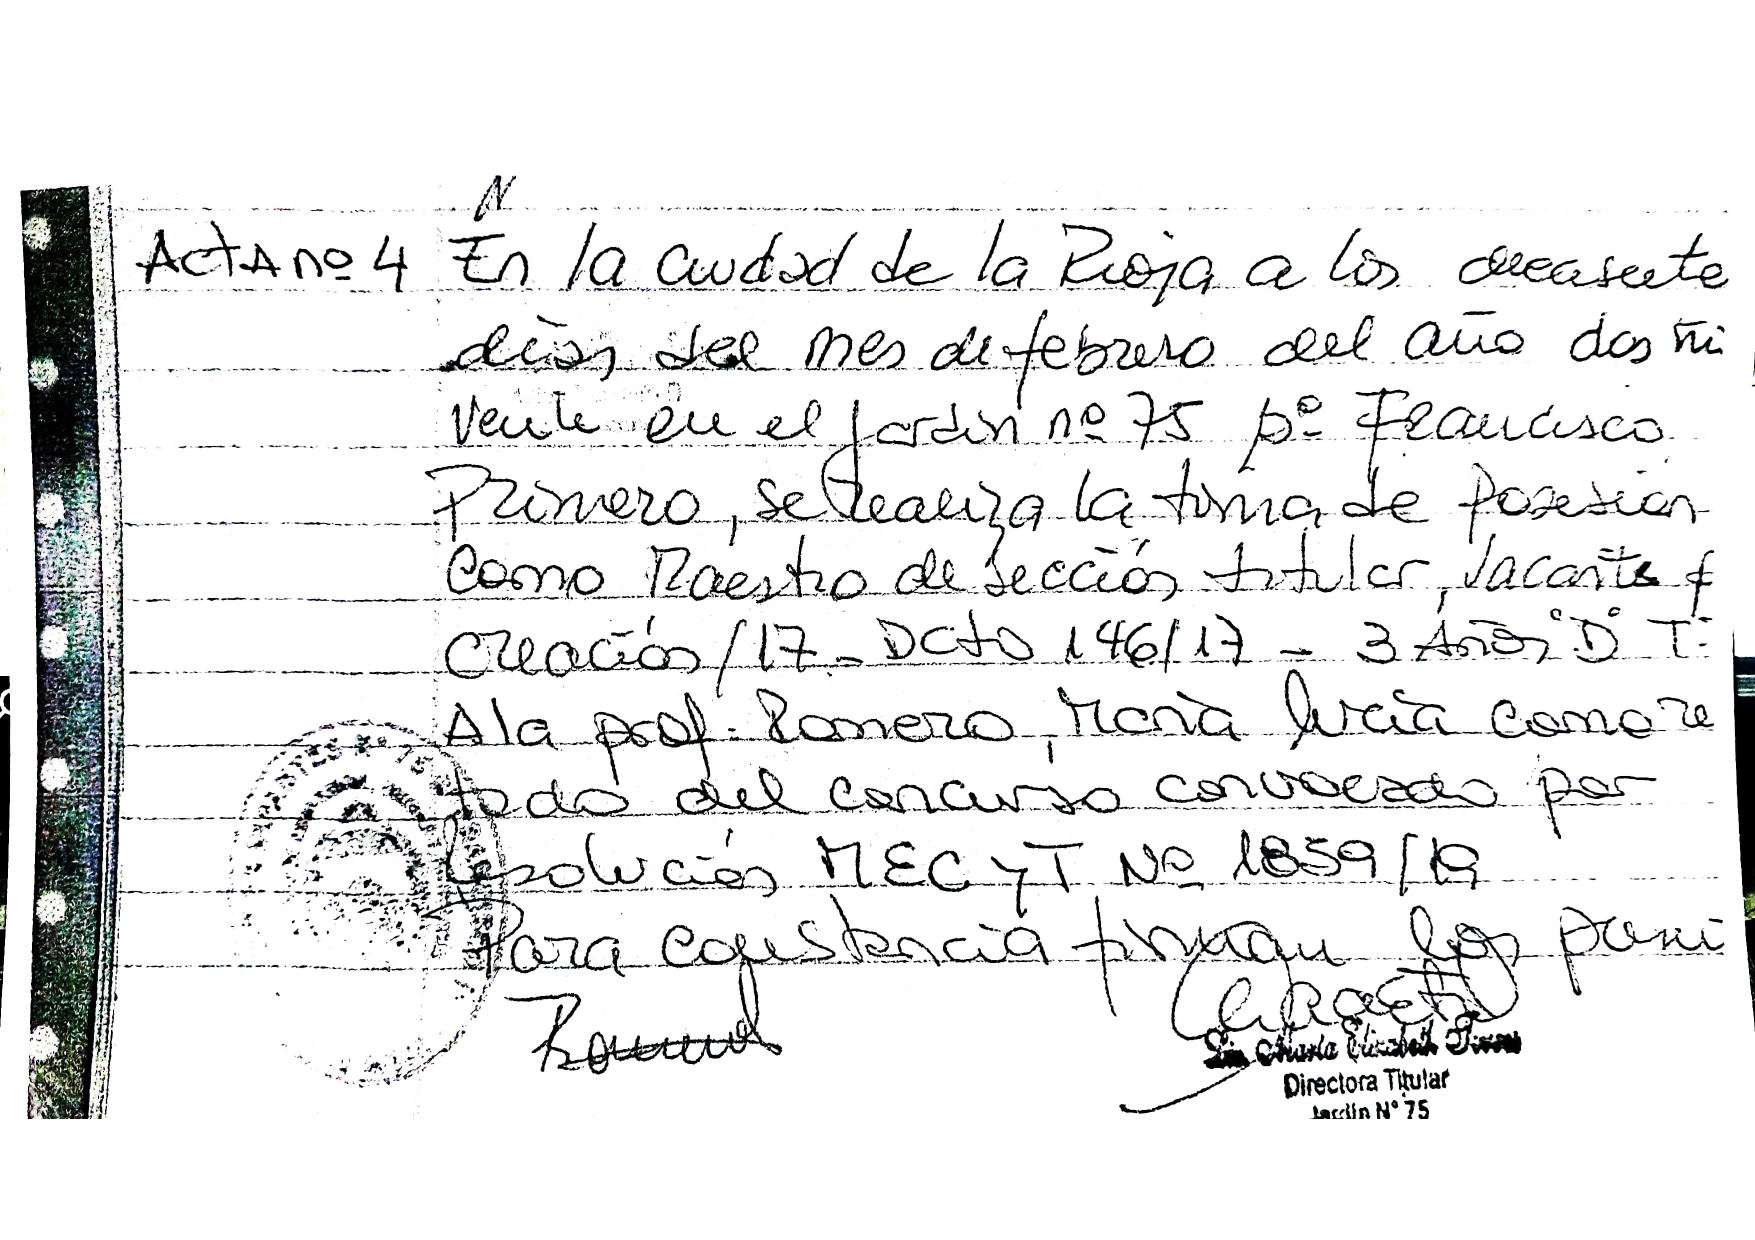 N
Acta nº 4 En la ciudad de la Rioja a los diecisiete
días del mes de febrero del año dos mi
veinte en el Jardín nº 75 pº Francisco
Primero, se realiza la toma de posesión
como Maestro de sección titular, vacante
creación/17 - Dcto 146/17 - 3 Años "D" T.
A la prof. Romero, María Lucía como re
tado del concurso convocado por
Resolución MECyT Nº 1859/19
Para constancia firman los
Directora Titular
Jardín N° 75